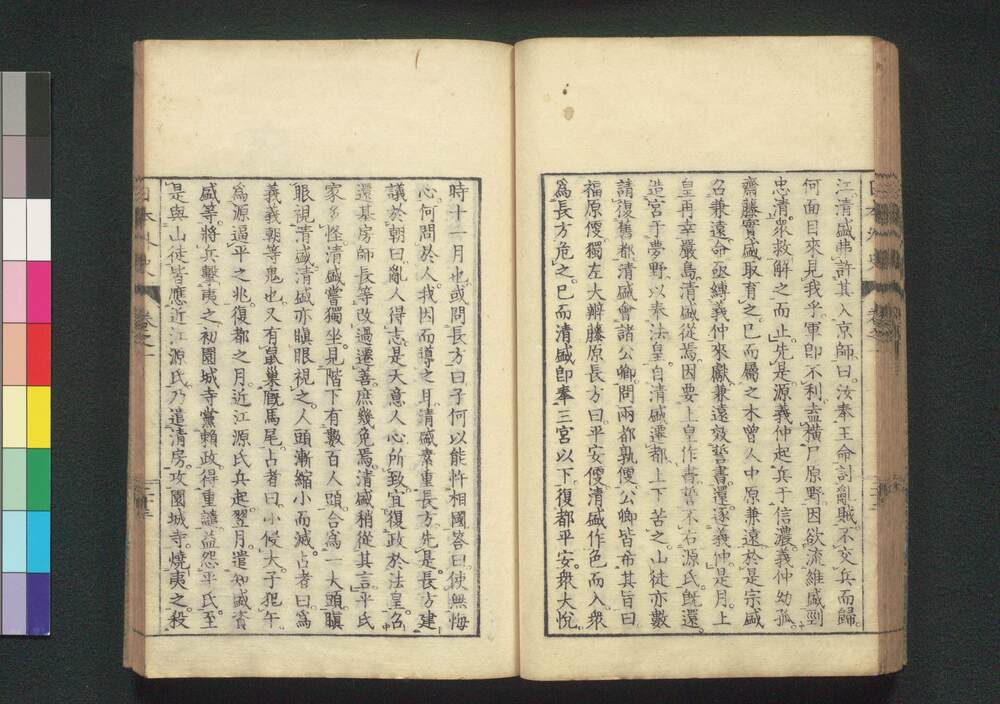 江。清盛弗許其入京師。曰。汝奉王命討亂賊。不交兵而歸。
何面目來見我乎。軍卽不利。盍橫尸原野。因欲流維盛。剄
忠清。衆救解之而止。先是。源義仲起兵于信濃。義仲幼孤。
齋藤實盛取育之。已而屬之木曾人中原兼遠。於是宗盛
召兼遠。命亟縛義仲來獻。兼遠效誓書。還。逐義仲。是月。上
皇再幸嚴島。清盛從焉。因要上皇作書。誓不右源氏。旣還。
造宮于夢野。以奉法皇。自清盛遷都。上下苦之。山徒亦數
請復舊都。清盛會諸公卿。問兩都孰便。公卿皆希其旨曰
福原便。獨左大辨藤原長方曰。平安便。清盛作色而入。衆
爲長方危之。已而清盛卽奉三宮以下復都平安。衆大悅。
時十一月也。或問長方曰。子何以能忤相國。答曰。使無悔
心。何問於人。我因而導之耳。清盛素重長方。先是。長方建
議於朝曰。亂人得志。是天意人心所致。宜復政於法皇。召
還基房師長等。改過遷善。庶幾免焉。清盛稍從其言。平氏
家多怪。清盛嘗獨坐。見階下有數百人頭。合爲一大頭。瞋
眼視清盛。清盛亦瞋眼視之。人頭漸縮小而滅。占者曰。爲
義義朝等鬼也。又有鼠巢廐馬尾。占者曰。小侵大。子犯午。
爲源逼平之兆。復都之月。近江源氏兵起。翌月。遣知盛資
盛等。將兵擊夷之。初園城寺黨賴政。得重譴。益怨平氏。至
是與山徒皆應近江源氏。乃遣清房。攻園城寺。燒夷之。殺
日本外史
卷之一